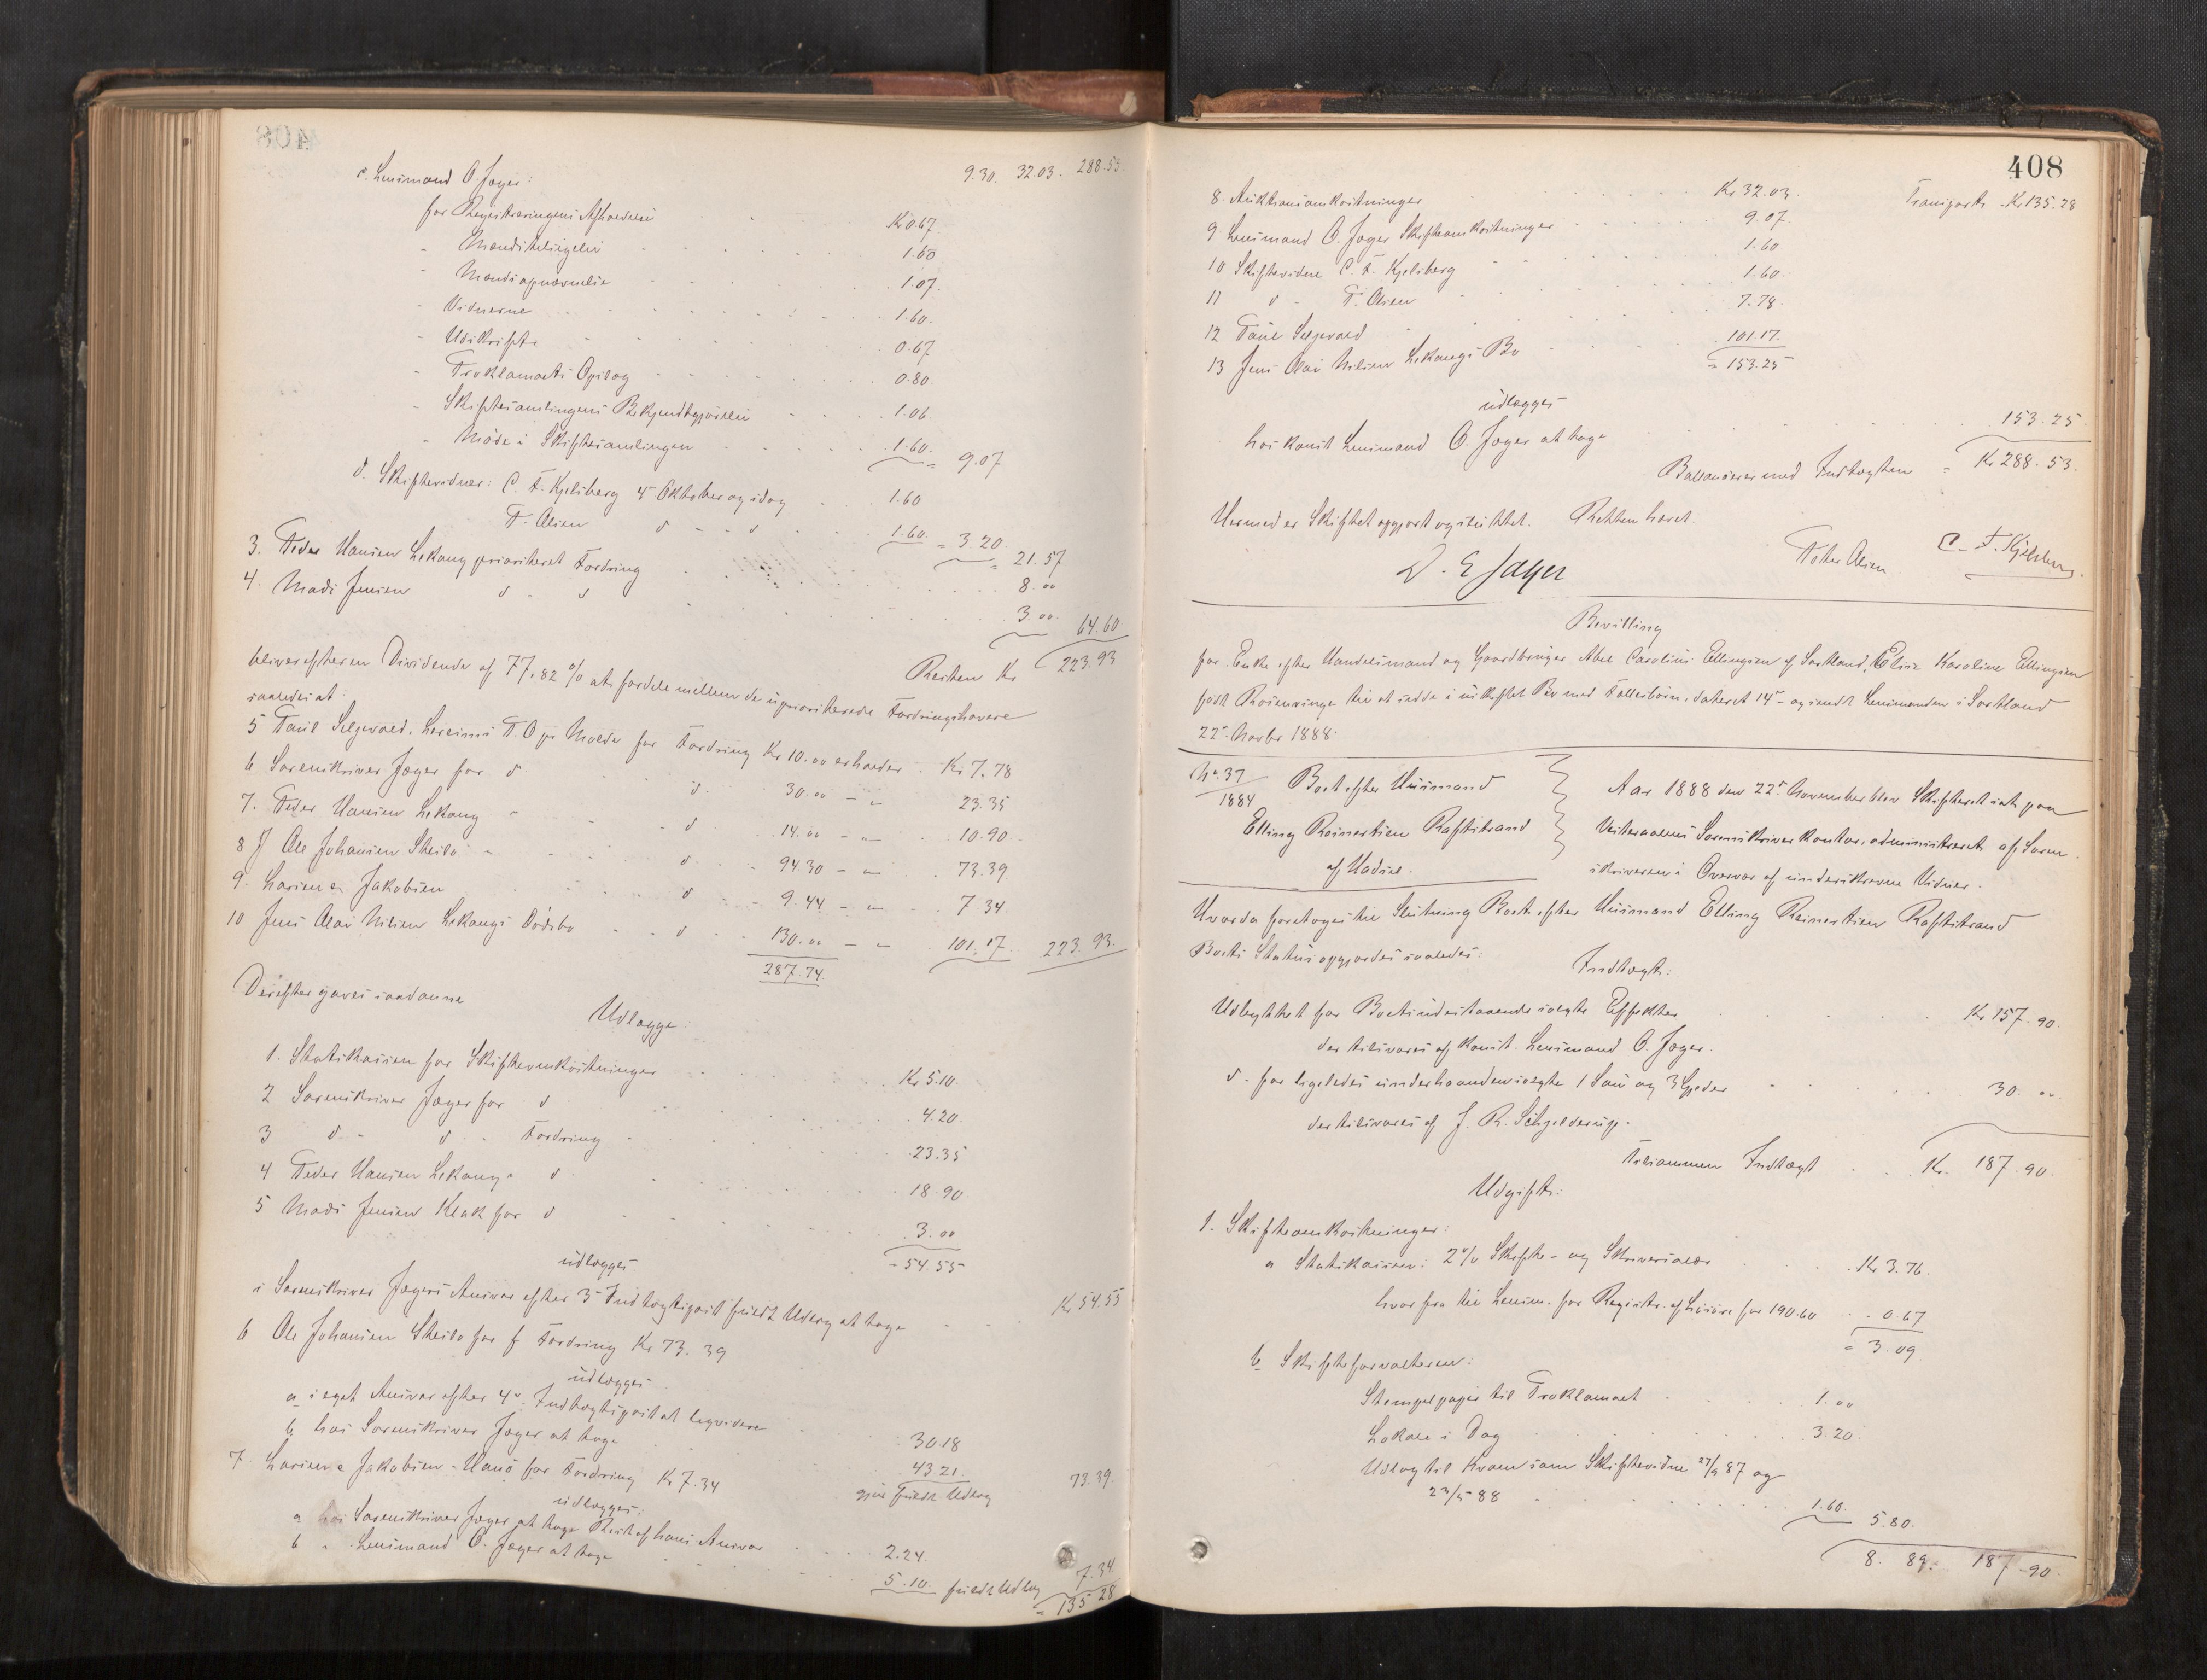 9.30. 32.03. 288.53.
c. Lensmand O. Jæger:
for Registreringens Afholdelse Kr 0.67.
" Mandstelingelse 1.60
" Mandsopnævnelse 1.07.
" Vidnerne 1.60.
" Udskrift 0.67
" Proklamaets Opslag 0.80.
" Skiftesamlingens Bekjendtgjørelse 1.06.
" Møde i Skiftesamlingen 1.60. = 9.07
d. Skiftevidner: C. F. Kjelsberg 4de Oktober og idag 1.60
P. Olsen d - d 1.60. = 3.20 = 21.57
3. Peder Hansen Lekang prioriteret Fordring 8.00
4. Mads Jensen d - d 3.00. 64.60
Resten Kr 223.93
bliver efter en Dividende af 77,82 % at fordele mellem de uprioriterede Fordringshavere
saaledes at:
5 Paul Selgevold, Leveims P. O. pr Molde for Fordring Kr 10.00 erholder Kr 7.78
6 Sorenskriver Jæger for d d 30.00 - " 23.35
7. Peder Hansen Lekang - d 14.00 - " 10.90
8 Ole Johansen Skeilo - d 94.30 - " 73.39
9. Larsen & Jakobsen d 9.44 - " 7.34
10 Jens Olai Nilsen Lekangs Dødsbo d 130.00 - " 101.17. 223.93.
287.74.
Derefter gaves saadanne
Udlægge:
1. Statskassen for Skifteomkostninger Kr 5.10.
2 Sorenskriver Jæger for d 4.20.
3 d. - d. - Fordring 23.35
4 Peder Hansen Lekang d 18.90
5 Mads Jensen Klak for d 3.00
udlægges - 54.55
i Sorenskriver Jægers Ansvar efter 3de Indtægtspost fuldt Udlæg at tage Kr 54.55
6 Ole Johansen Skeilo for f Fordring Kr 73.39
udlægges
a i eget Ansvar efter 4de Indtægtspost at liqvidere 30.18
b hos Sorenskriver Jæger at tage 43.21.
gjør fuldt Udlæg 73.39.
7 Larsen & Jakobsen - Hanø for Fordring Kr 7.34
udlægges:
a hos Sorenskriver Jæger at tage Rest af hans Ansvar 2.24.
b " Lensmand O. Jæger at tage 5.10. fuldt Udlæg 7.34
= 135.28
408
Transport Kr 135.28
8. Auktionsomkostninger Kr 32.03.
9 Lensmand O. Jæger Skifteomkostninger 9.07.
10 Skiftevidne C. F. Kjelsberg 1.60
11 d - P. Olsen 1.60.
12 Paul Selgevold 7.78.
13 Jens Olai Nilsen Lekangs Bo 101.17.
= 153.25
udlægges
hos konst Lensmand O. Jæger at tage 153.25
Ballancerer med Indtægten = Kr 288.53.
Hermed er Skiftet opgjort og sluttet. Retten hævet.
D. E Jæger
Peter Olsen C. F. Kjelsberg.
Bevilling
for Enke efter Handelsmand og Gaardbruger Abel Carolius Ellingsen af Sortland, Elise Karoline Ellingsen
født Rosenvinge til at sidde i uskiftet Bo med Fællesbørn, dateret 14de og sendt Lensmanden i Sortland
22de Novbr 1888.
No. 37
1884
Boet efter Huusmand
Elling Reinertsen Raftstrand
af Hadsel.
Aar 1888 den 22de November blev Skifteret sat paa
Vesteraalens Sorenskriverkontor, administreret af Soren-
skriveren i Overvær af underskrevne Vidner.
Hvorda foretoges til Slutning Boet efter Huusmand Elling Reinertsen Raftstrand
Boets Status opgjordes saaledes:
Indtægt:
Udbyttet for Boets indestaaende solgte Effekter Kr 157.90.
der tilsvares af konst. Lensmand O. Jæger.
d. for ligeledes underhaanden solgte 1 Sau og 3 Gjeder 30.00.
der tilsvares af J. R. Schjelderup.
Tilsammen Indtægt Kr. 187.90.
Udgift:
1. Skifteomkostninger:
a Statskassen: 2% Skifte- og Skriversalær Kr 3.76.
hvorfra til Lensm. for Registr. af Løsøre for 190.60 0.67
= 3.09
b Skifteforvalteren:
Stempelpapir til Proklamaet 1.00
Lokale i Dag 3.20.
Udlæg til Kvam som Skiftevidne 27/9 87 og
23/5 88 1.60. 5.80.
8.89. 187.90.